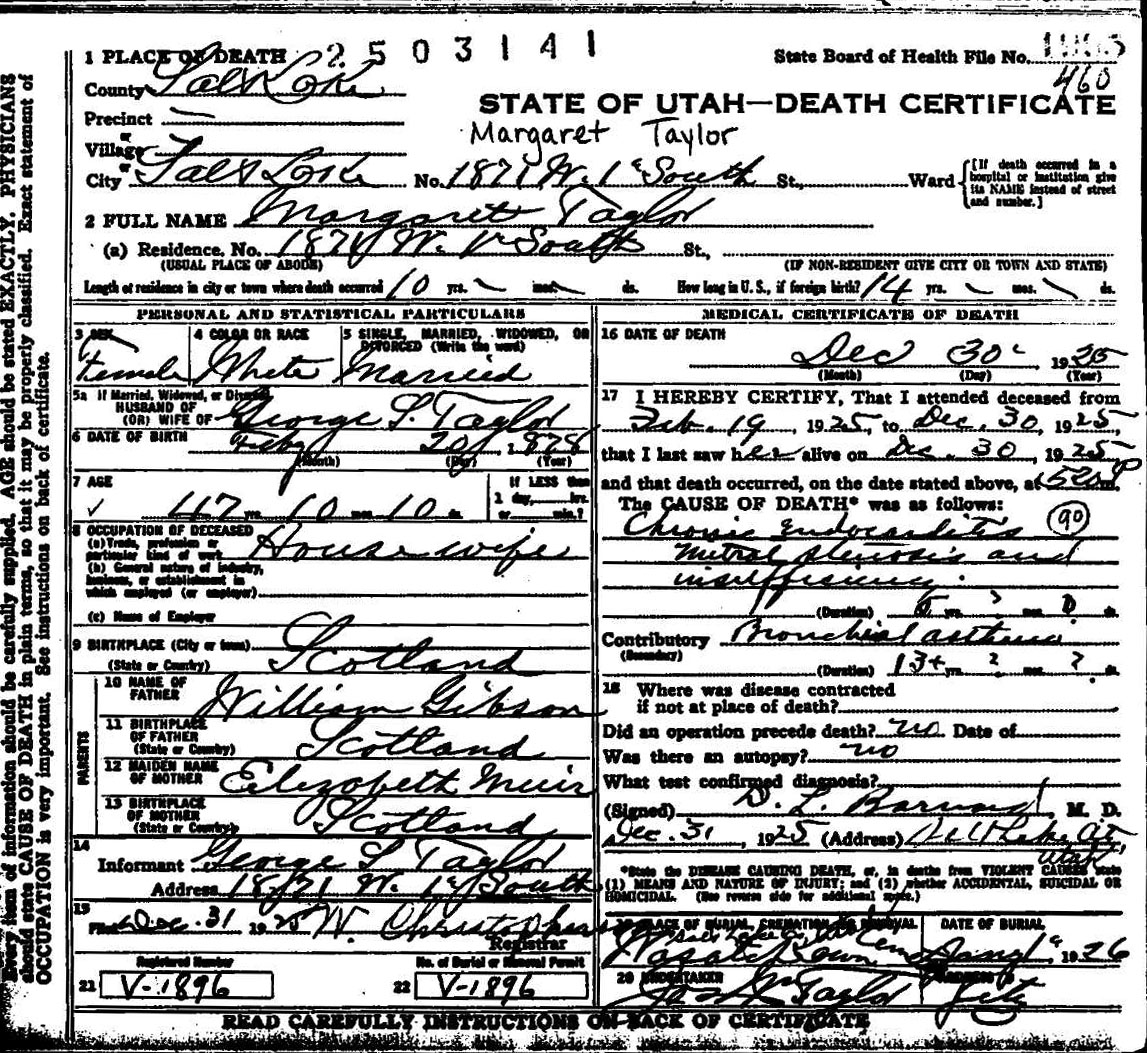 1 PLACE OF DEATH 2503141
State Board of Health File No.
460
County Salt Lake
STATE OF UTAH—DEATH CERTIFICATE
Precinct —
Margaret Taylor
or
Village
or
City Salt Lake No. 1871 W. 1st South St., Ward
[If death occurred in a
hospital or institution give
its NAME instead of street
and number.]
2 FULL NAME Margaret Taylor
(a) Residence. No. 1871 W. 1st South St.,
(USUAL PLACE OF ABODE) (IF NON-RESIDENT GIVE CITY OR TOWN AND STATE)
Length of residence in city or town where death occurred 10 yrs. mos. ds. How long in U. S., if foreign birth? 14 yrs. mos. ds.
PERSONAL AND STATISTICAL PARTICULARS
3 SEX 4 COLOR OR RACE 5 SINGLE, MARRIED, WIDOWED, OR
DIVORCED (Write the word)
Female White Married
5a If Married, Widowed, or Divorced
HUSBAND OF
(OR) WIFE OF George S. Taylor
6 DATE OF BIRTH Feby 20 1878
(Month) (Day) (Year)
7 AGE If LESS than
1 day, hrs.
47 yrs. 10 mos. 10 ds. or min.?
8 OCCUPATION OF DECEASED
(a) Trade, profession or
particular kind of work Housewife
(b) General nature of industry,
business, or establishment in
which employed (or employer)
(c) Name of Employer
9 BIRTHPLACE (City or town)
(State or Country) Scotland
PARENTS
10 NAME OF
FATHER William Gibson
11 BIRTHPLACE
OF FATHER
(State or Country) Scotland
12 MAIDEN NAME
OF MOTHER Elizabeth Muir
13 BIRTHPLACE
OF MOTHER
(State or Country) Scotland
14
Informant George S Taylor
Address 1871 W. 1st South
15
Filed Dec. 31 1925 W. Christophers
Registrar
Registered Number No. of Burial or Removal Permit
21 V-1896 22 V-1896
MEDICAL CERTIFICATE OF DEATH
16 DATE OF DEATH
Dec 30 1925
(Month) (Day) (Year)
17 I HEREBY CERTIFY, That I attended deceased from
Feb. 19, 1925, to Dec. 30, 1925,
that I last saw her alive on Dec. 30, 1925
and that death occurred, on the date stated above, at 520 P m.
The CAUSE OF DEATH* was as follows:
Chronic Endocarditis 90
Mitral stenosis and
insufficiency.
(Duration) yrs. ? mos. ds.
Contributory Bronchial asthma
(Secondary)
(Duration) 13+ yrs. ? mos. ? ds.
18 Where was disease contracted
if not at place of death?
Did an operation precede death? no Date of
Was there an autopsy? no
What test confirmed diagnosis?
(Signed) D. L. Barnard M. D.
Dec. 31, 1925 (Address) Salt Lake City
Utah.
*State the DISEASE CAUSING DEATH, or, in deaths from VIOLENT CAUSES state
(1) MEANS AND NATURE OF INJURY; and (2) whether ACCIDENTAL, SUICIDAL OR
HOMICIDAL. (See reverse side for additional space.)
19 PLACE OF BURIAL, CREMATION OR REMOVAL DATE OF BURIAL
Wasatch Lawn Cem Jany 1st 1926
20 UNDERTAKER ADDRESS
Taylor City
READ CAREFULLY INSTRUCTIONS ON BACK OF CERTIFICATE
Every item of information should be carefully supplied. AGE should be stated EXACTLY. PHYSICIANS
should state CAUSE OF DEATH in plain terms, so that it may be properly classified. Exact statement of
OCCUPATION is very important. See instructions on back of certificate.